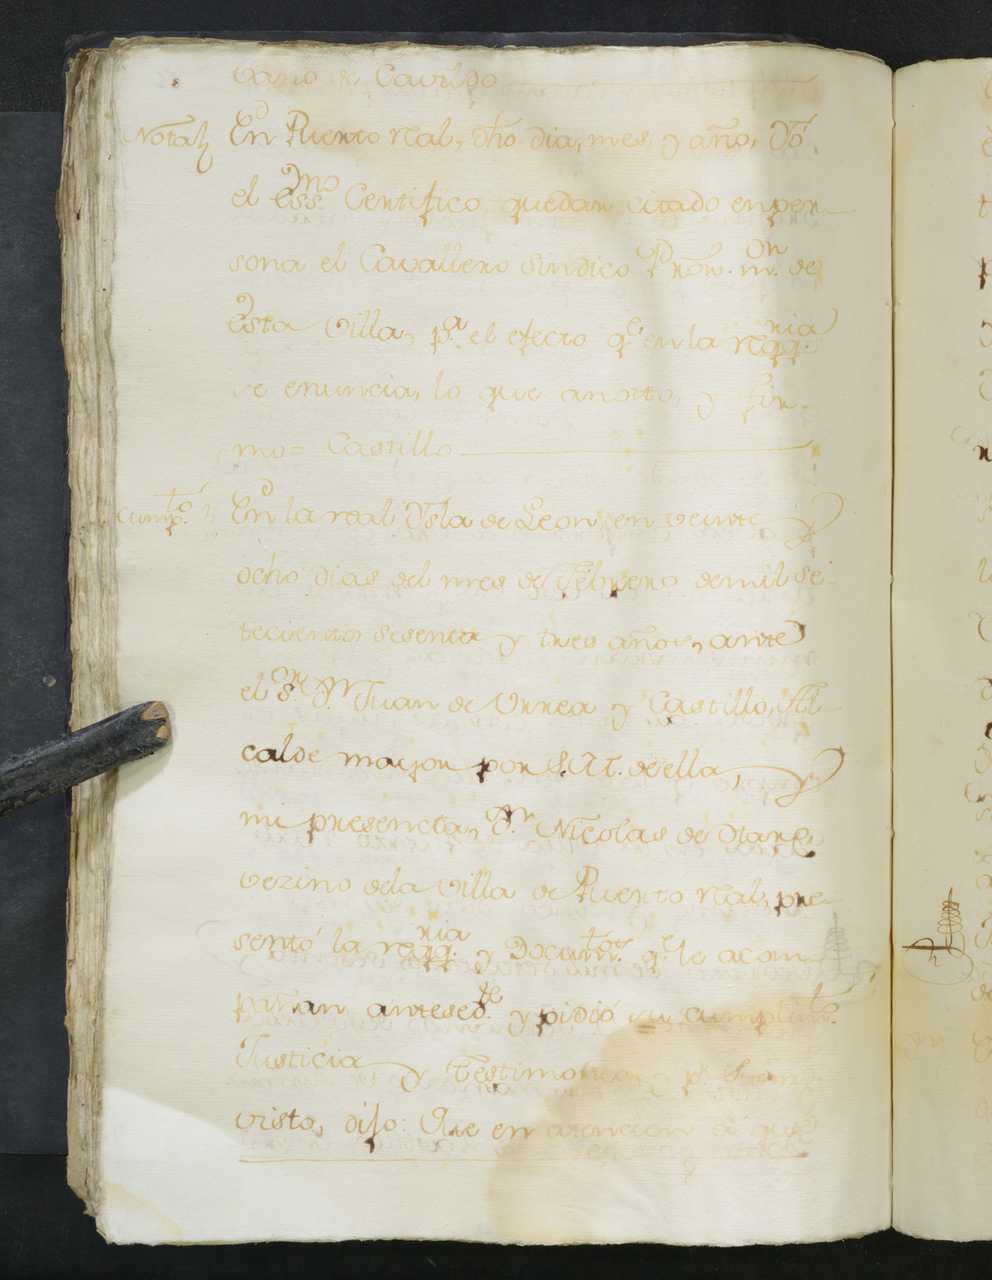 vano de Cavildo
Nota
En Puerto real, dho dia, mes, y año, Yo
el Essmo Certifico quedar citado en per-
sona el Cavallero Sindico Pror. mor. de
Esta villa, pa. el efecto qe. en la reqqria
se enuncia, lo que anoto, y fir-
mo = Castillo
Cumpto.
En la real Ysla de Leon, en veinte y
ocho dias del mes de Febrero de mil se-
tecientos sesenta y tres años, ante
el Sor. Dn. Juan de Urrea y Castillo, Al-
calde mayor por S. M. de ella, y
mi presencia, Dn. Nicolas de Olave
vezino de la villa de Puerto real, pre-
sentó la reqqria y Documtos. qe. lo acom-
pañan antesedte. y pidió su cumplimto.
Justicia y Testimonio, y pr. Smrd.
visto, dijo: Que en atencion á que